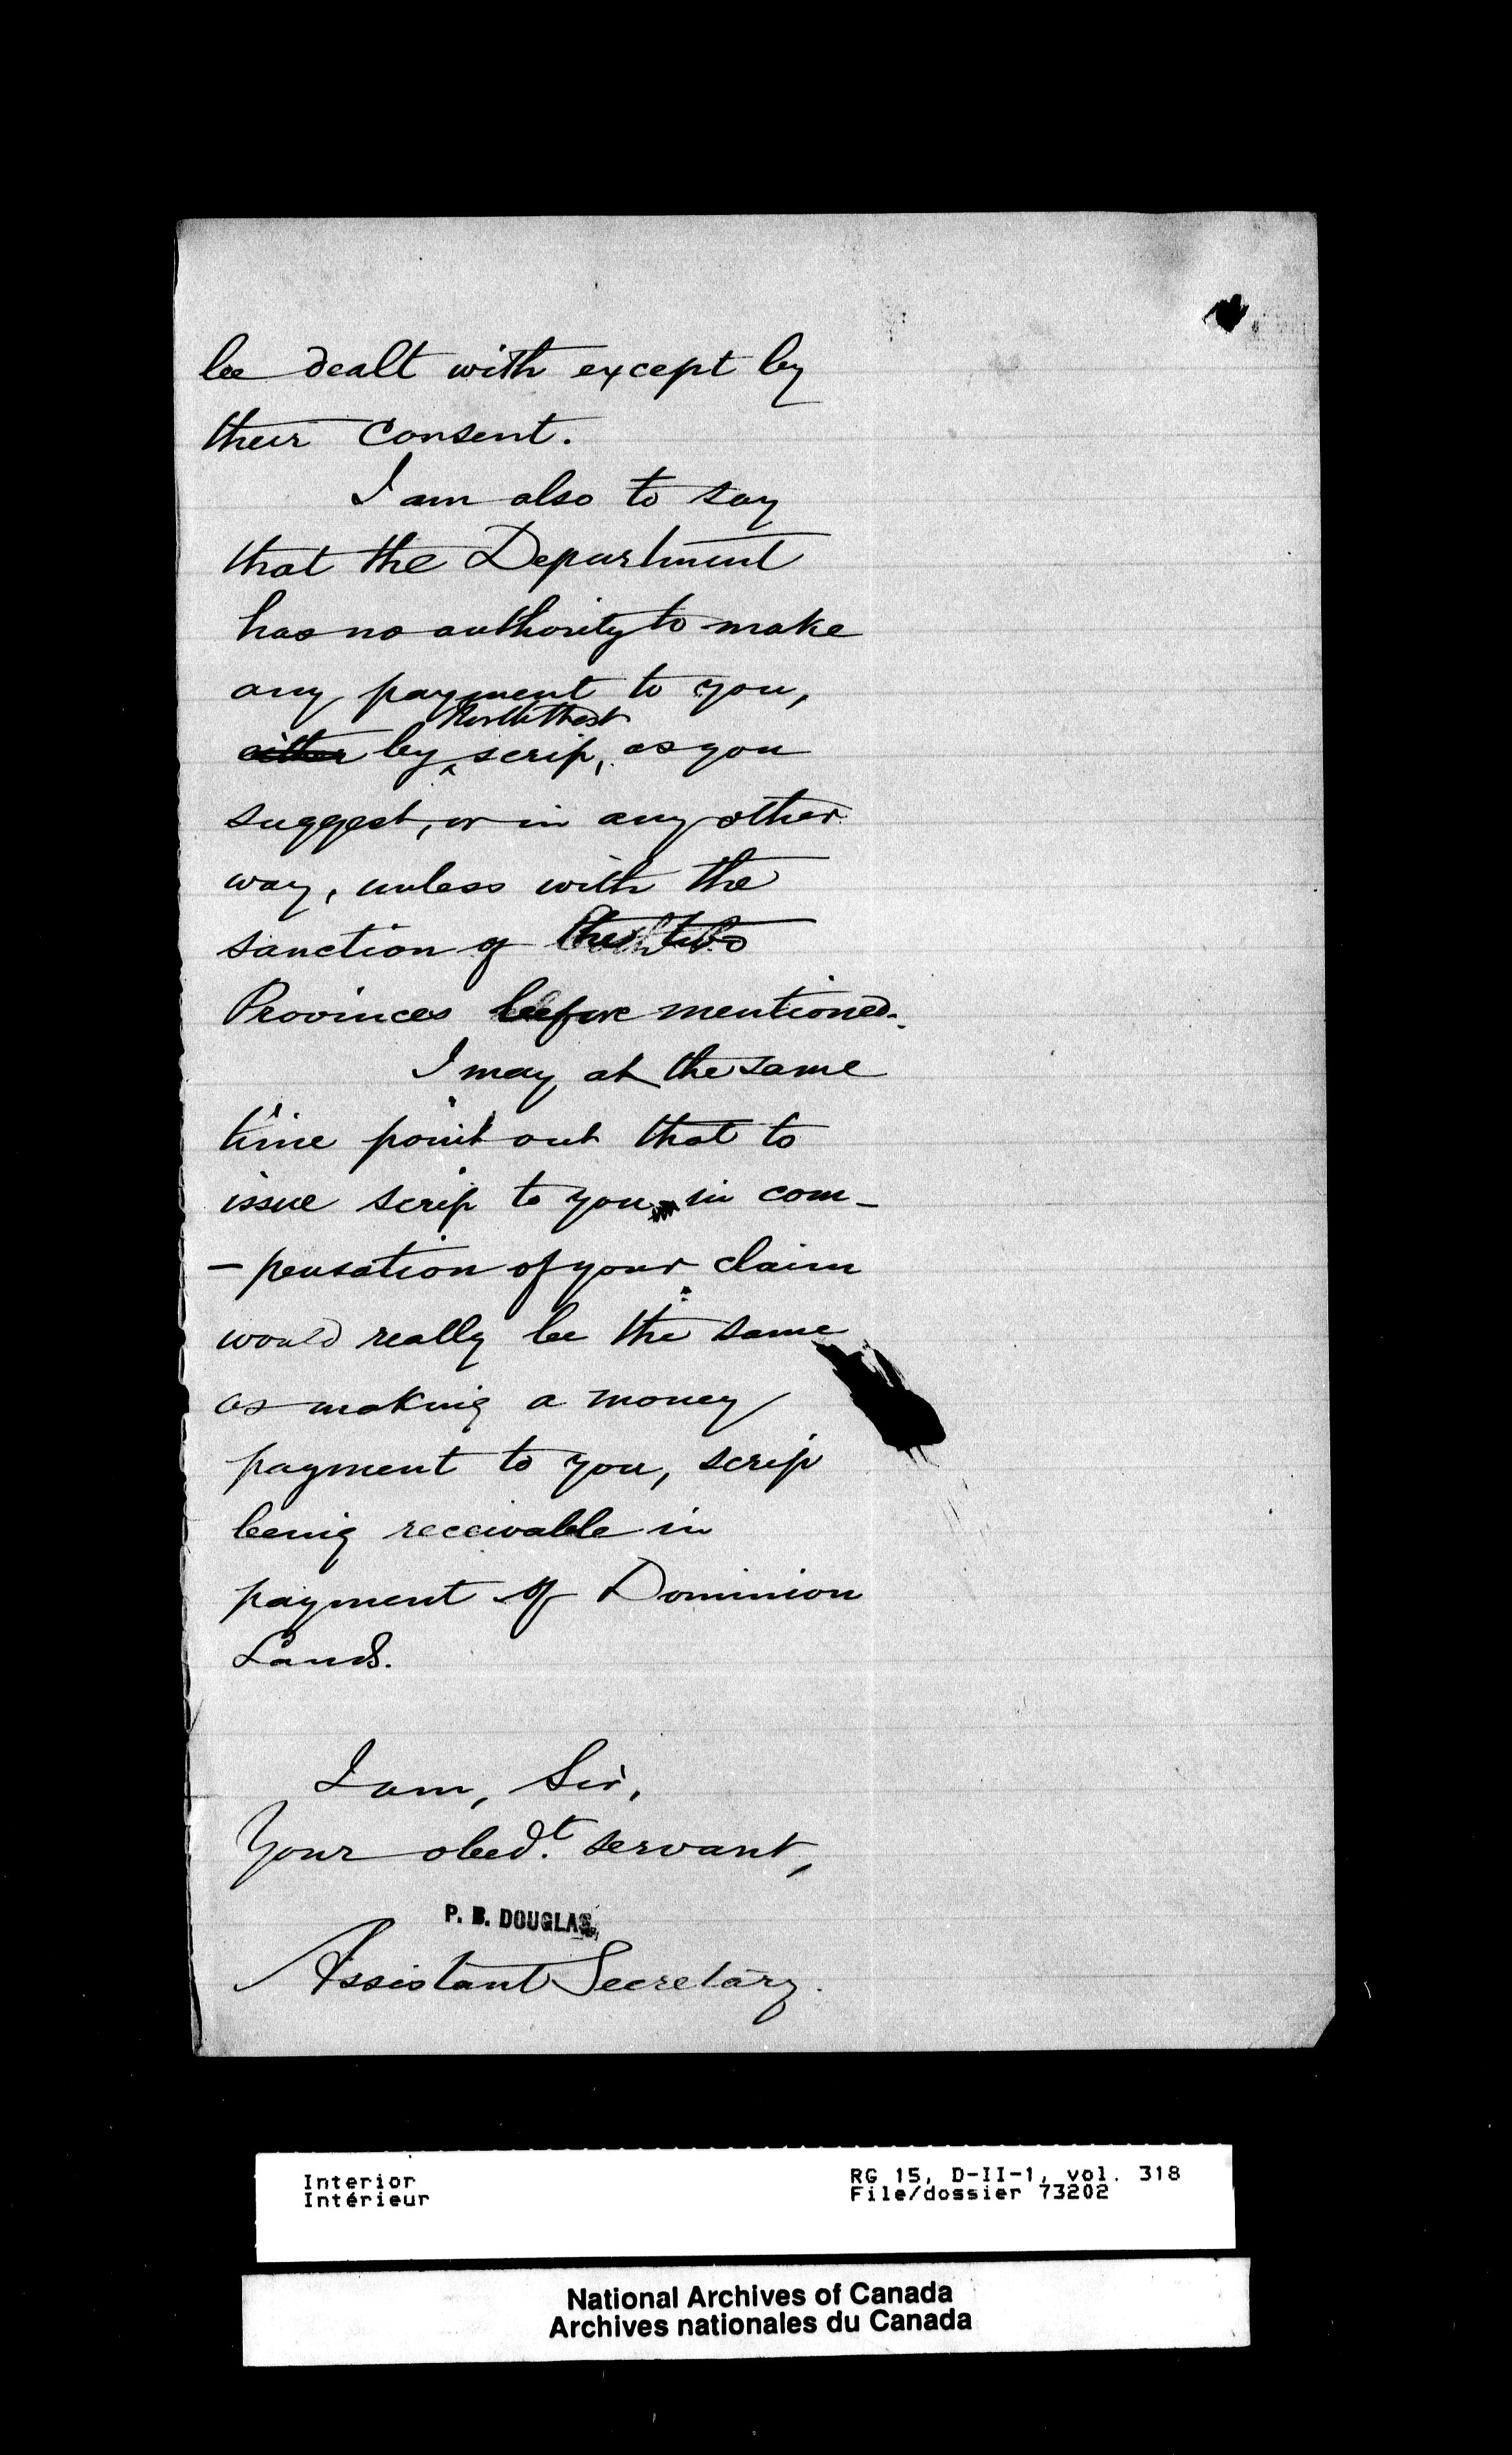 be dealt with except by
their consent.
I am also to say
that the Department
has no authority to make
any payment to you,
Northwest
either by ^ scrip, as you
suggest, or in any other
way, unless with the
sanction of the two
Provinces before mentioned.
I may at the same
time point out that to
issue scrip to you in com-
- pensation of your claim
would really be the same
as making a money
payment to you, scrip
being receivable in
payment of Dominion
Lands.
I am, Sir,
Your obedt. servant,
P. B. DOUGLAS,
Assistant Secretary.
Interior
Intérieur
RG 15, D-II-1, vol. 318
File/dossier 73202
National Archives of Canada
Archives nationales du Canada